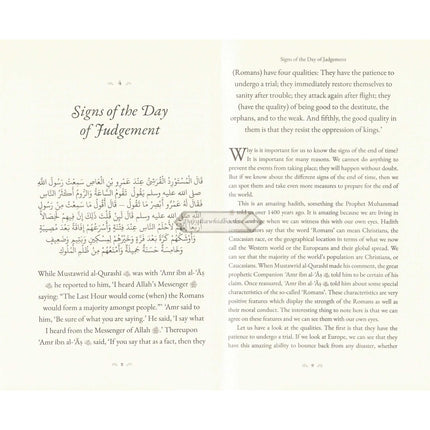 Signs of the Day
of Judgement
قال المستورد القرشي عند عمرو بن العاص سمعت رسول الله
صلى الله عليه وسلم يقول تقوم الساعة والروم أكثر الناس
فقال له عمرو أبصر ما تقول قال أقول ما سمعت من رسول
الله صلى الله عليه وسلم قال لئن قلت ذلك إن فيهم لخصالا
أربعا إنهم لأحلم الناس عند فتنة وأسرعهم إفاقة بعد مصيبة
وأوشكهم كرة بعد فرة وخيرهم لمسكين ويتيم وضعيف
وخامسة حسنة جميلة وأمنعهم من ظلم الملوك
While Mustawrid al-Qurashī ﷺ, was with ‘Amr ibn al-‘Āṣ
he reported to him, ‘I heard Allah’s Messenger ﷺ
saying: “The Last Hour would come (when) the Romans
would form a majority amongst people.”’ ‘Amr said to
him, ‘Be sure of what you are saying.’ He said, ‘I say what
I heard from the Messenger of Allah ﷺ.’ Thereupon
‘Amr ibn al-‘Āṣ said, ‘If you say that as a fact, then they
Signs of the Day of Judgement
(Romans) have four qualities: They have the patience to
undergo a trial; they immediately restore themselves to
sanity after trouble; they attack again after flight; they
(have the quality) of being good to the destitute, the
orphans, and to the weak. And fifthly, the good quality
in them is that they resist the oppression of kings.’
Why is it important for us to know the signs of the end of time?
It is important for many reasons. We cannot do anything to
prevent the events from taking place; they will happen without doubt.
But if we know about the different signs of the end of time, then we
can spot them and take even more measures to prepare for the end of
the world.
This is an amazing hadith, something the Prophet Muhammad
told us over 1400 years ago. It is amazing because we are living in
this time and we can witness it with our own eyes. Hadith
commentators say that the word ‘Romans’ can mean Christians, the
Caucasian race, or the geographical location in terms of what we now
call the Western World or the Europeans and their global spread. We
can see that the majority of the world’s population are Christians, or
Caucasians. When Mustawrid al-Qurashī made his comment, the great
prophetic Companion ‘Amr ibn al-‘Āṣ, told him to be certain of his
claim. Once reassured, ‘Amr ibn al-‘Āṣ told him about some special
characteristics of the so-called ‘Romans’. These characteristics are very
positive features which display the strength of the Romans as well as
their moral conduct. The interesting thing to note here is that we can
agree on these features and we can see them with our own eyes.
Let us have a look at the qualities. The first is that they have the
patience to undergo a trial. If we look at Europe, we can see that they
have this amazing ability to bounce back from any disaster, whether